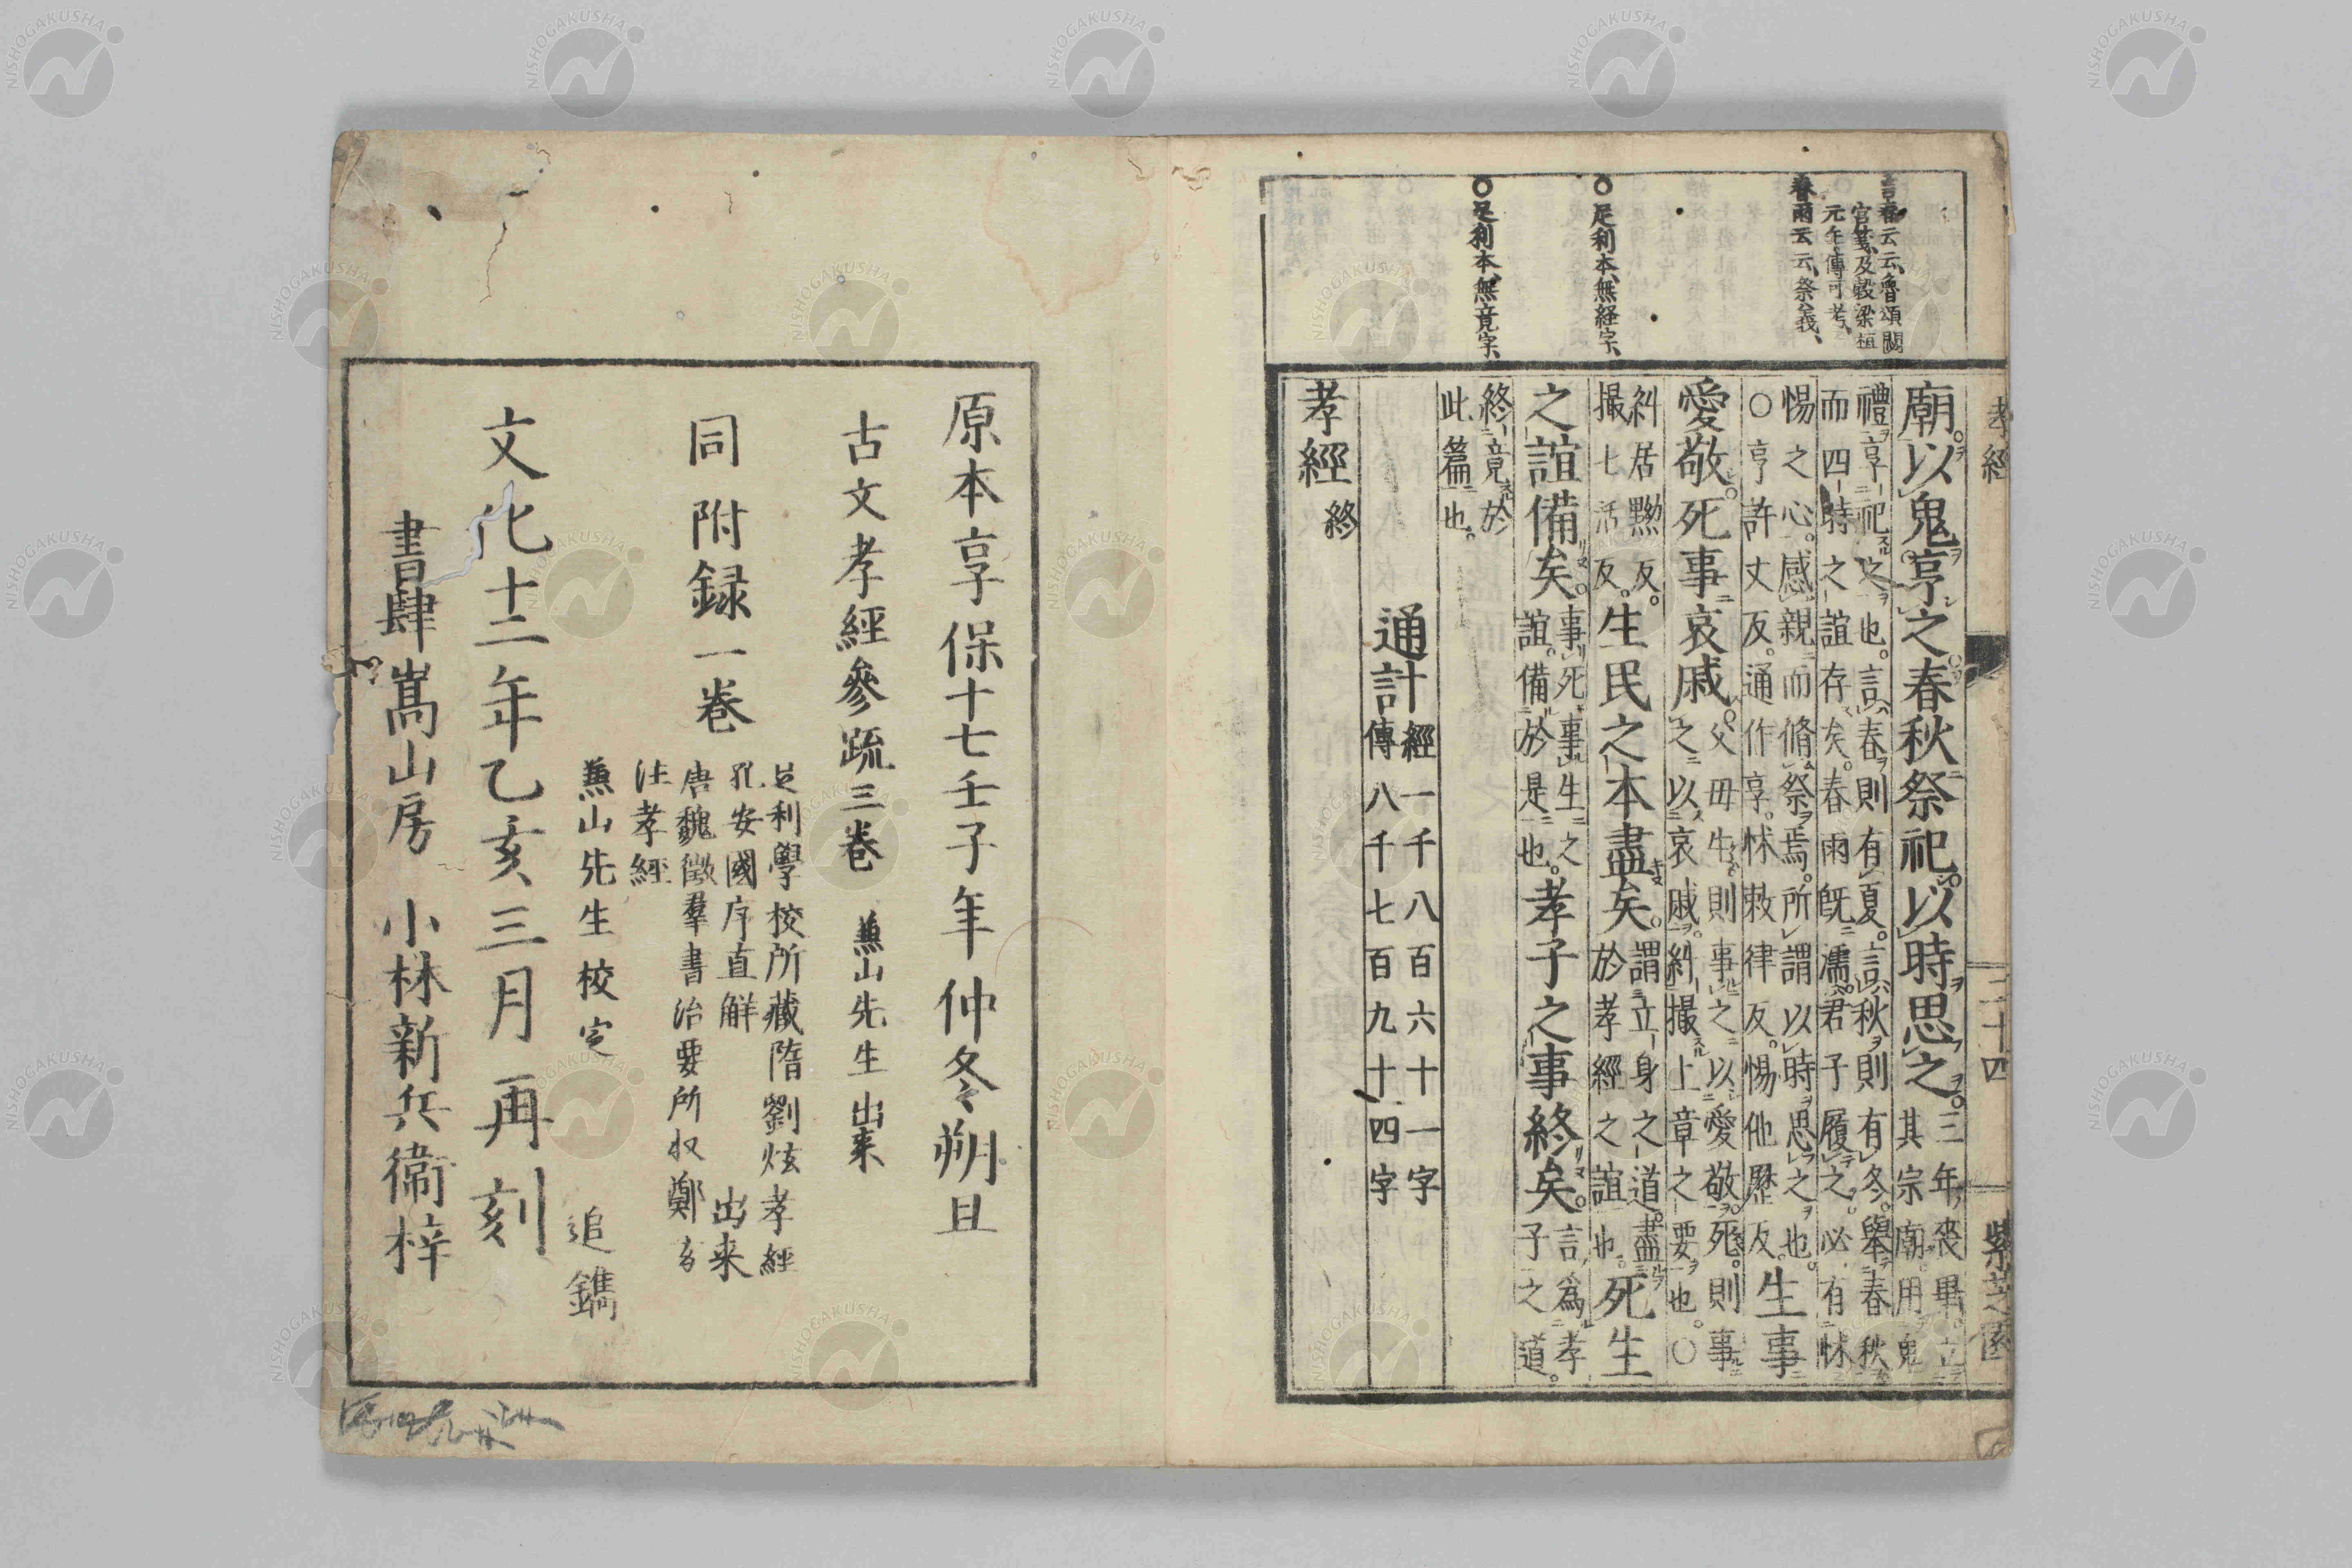 言春云云、魯頌閟
宮箋、及穀梁桓
元年傳可考、
春雨云云、祭義、
○足利本、無経字、
○足利本、無竟字、
孝經
三十四
紫芝園
廟。以鬼享之。春秋祭祀。以時思之。三年喪畢。立
其宗廟。用鬼
禮享祀之也。言春則有夏。言秋則有冬。舉春秋
而四時之誼存矣。春雨既濡。君子履之。必有怵
惕之心。感親而脩祭焉。所謂以時思之也。
○享許丈反。通作亨。怵敕律反。惕他歷反。生事
愛敬。死事哀戚。父毋生。則事之以愛敬。死。則事
之以哀戚。糾撮上章之要也。○
糾居黝反。
撮七活反。生民之本盡矣。謂立身之道。盡
於孝經之誼也。死生
之誼備矣。事死事生之
誼。備於是也。孝子之事終矣。言爲孝
子之道。
終竟於
此篇也。
通計經一千八百六十一字
傳八千七百九十四字
孝經終
原本享保十七壬子年仲冬朔旦
古文孝經參疏三卷 兼山先生 出来
同附録一卷
足利學校所藏隋劉炫孝經
孔安國序直解 出来
唐魏徵羣書治要所收鄭玄
注孝經
兼山先生校定 追鐫
文化十二年乙亥三月再刻
書肆嵩山房 小林新兵衞梓